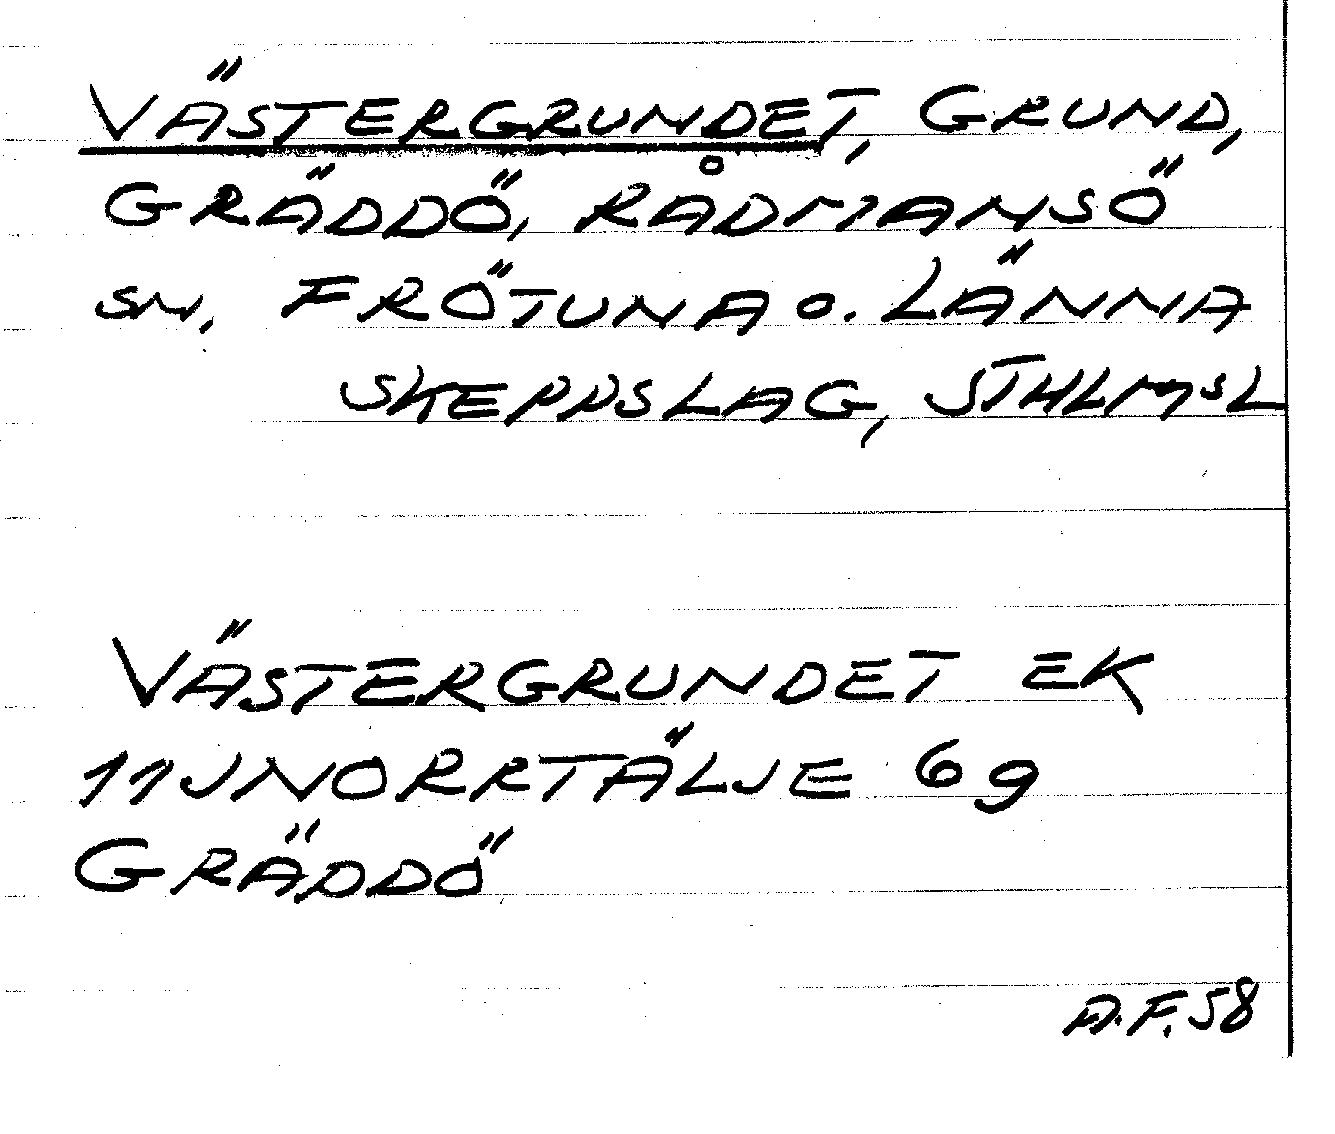 VÄSTERGRUNDET, GRUND,
GRÄDDÖ, RÅDMANSÖ
SN, FRÖTUNA O. LÄNNA
SKEPPSLAG, STHLMSL
VÄSTERGRUNDET EK
11J NORRTÄLJE 69
GRÄDDÖ
A.F. 58